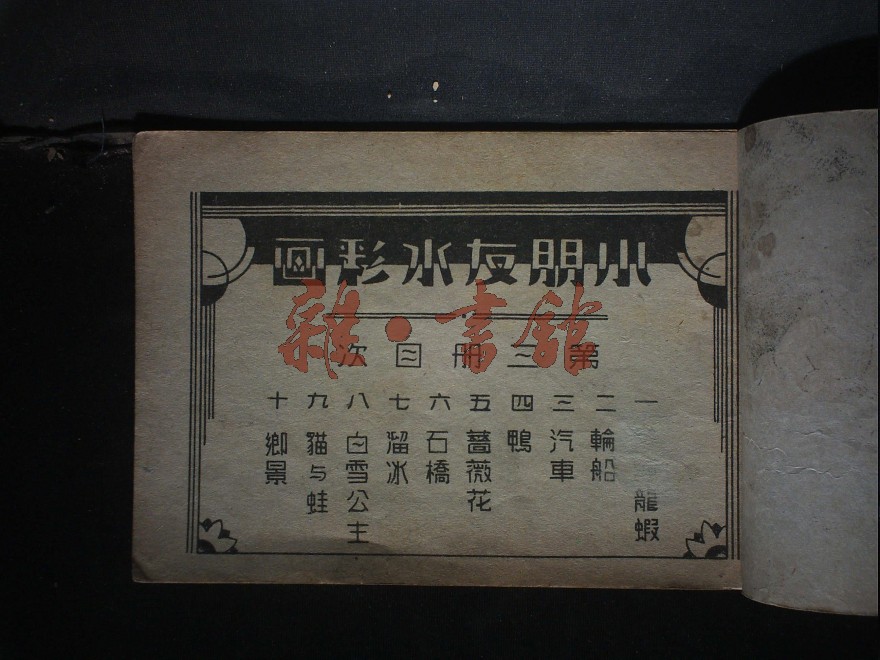 小朋友水彩画
第三册目次
一 龍蝦
二 輪船
三 汽車
四 鴨
五 薔薇花
六 石橋
七 溜冰
八 白雪公主
九 貓与蛙
十 鄉景
雜·書館